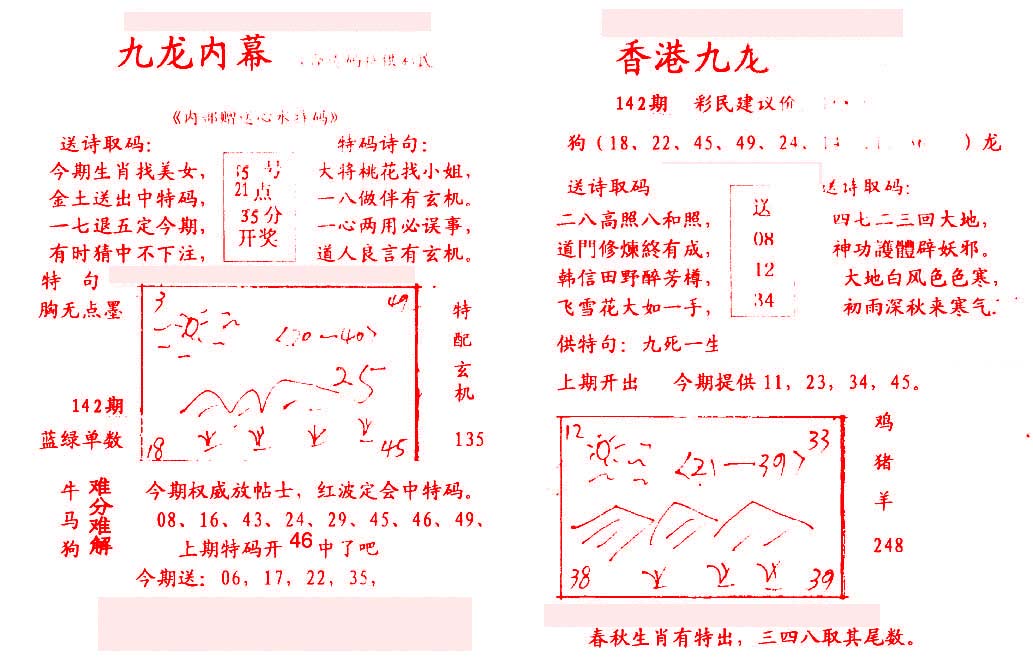 九龙内幕
送诗取码：
今期生肖找美女，
金土送出中特码，
一七退五定今期，
有时猜中不下注，
21点
35分
开奖
特码诗句：
大将桃花找小姐，
一八做伴有玄机。
一心两用必误事，
道人良言有玄机。
特 句
胸无点墨
142期
蓝绿单数
3
49
〈20—40〉
25
18
45
特
配
玄
机
135
牛
马
狗
难分难解
今期权威放帖士，红波定会中特码。
08、16、43、24、29、45、46、49、
上期特码开 46 中了吧
今期送：06，17，22，35，
香港九龙
142期 彩民建议价
狗（18、22、45、49、24、14 ）龙
送诗取码
二八高照八和照，
道門修煉終有成，
韩信田野醉芳樽，
飞雪花大如一手，
送
08
12
34
送诗取码：
四七二三回大地，
神功護體辟妖邪。
大地白风色色寒，
初雨深秋来寒气.
供特句：九死一生
上期开出 今期提供11，23，34，45。
12
33
〈21—39〉
38
39
鸡
猪
羊
248
春秋生肖有特出，三四八取其尾数。